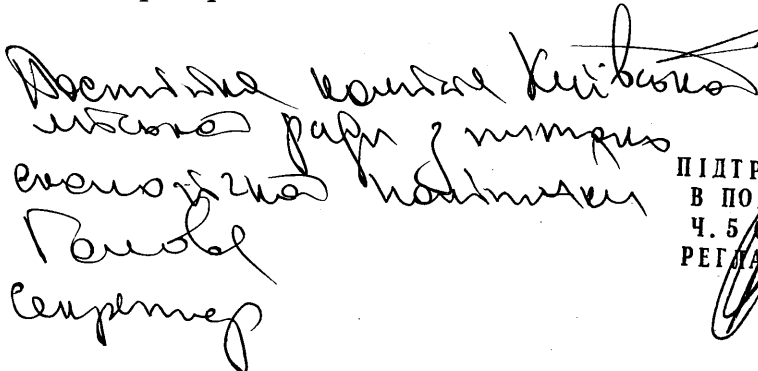 Постійна комісія Київської
міської ради з питань
екологічної політики
Голова
Секретар
ПІДТР
В ПО
Ч. 5
РЕГЛА